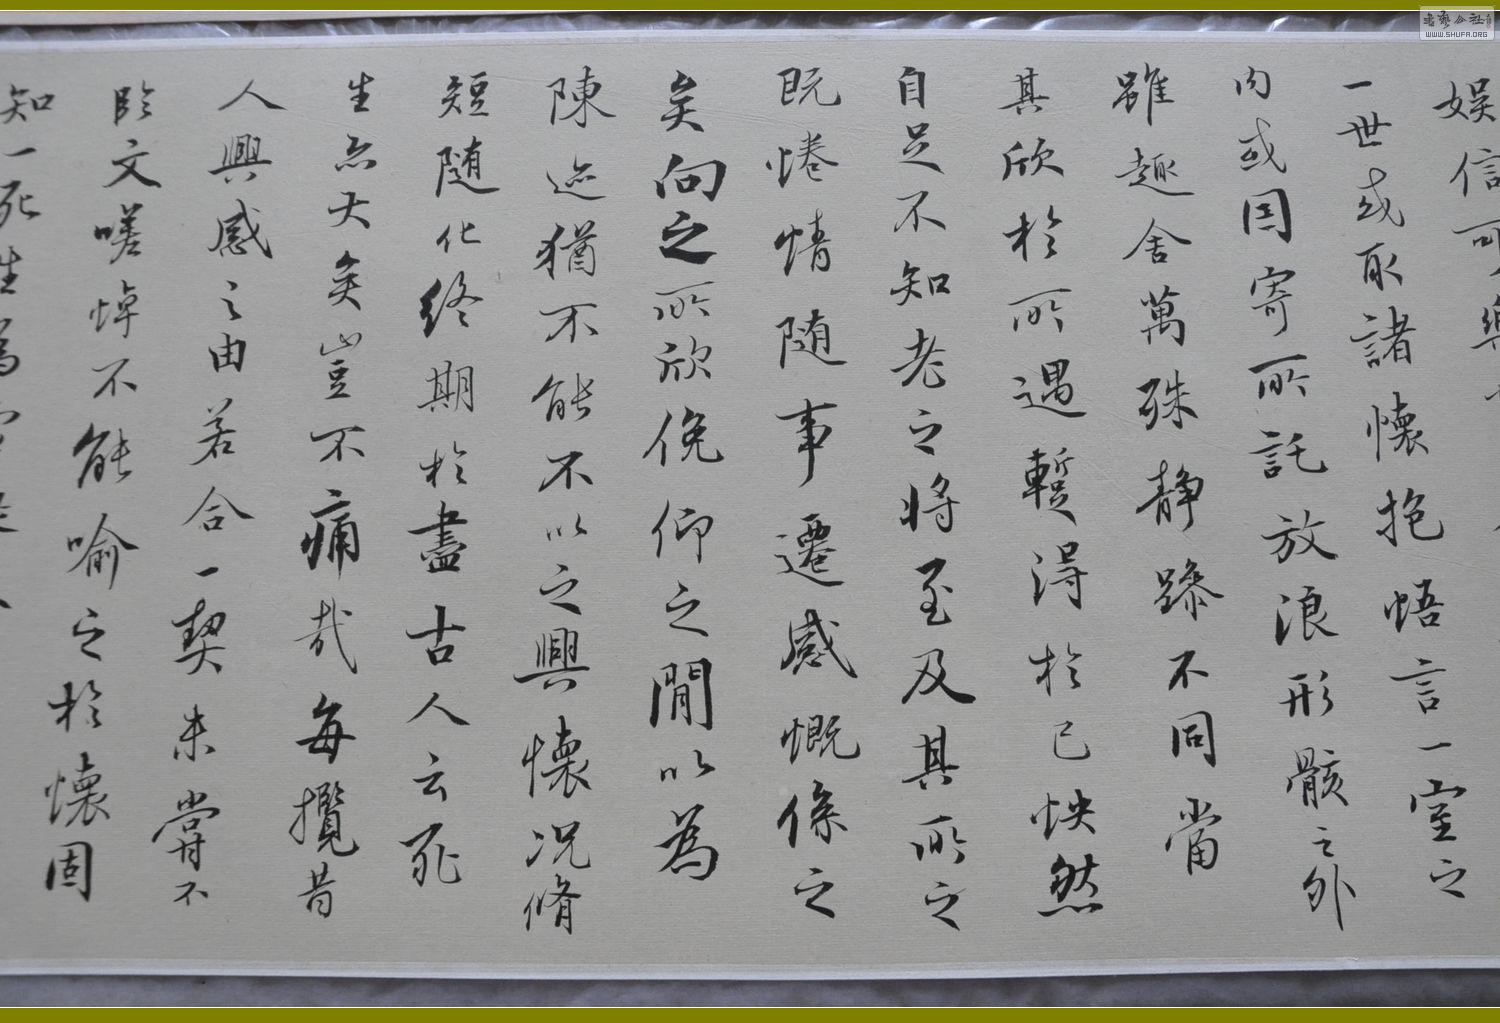 娛信可樂
一世或取諸懷抱悟言一室之
內或因寄所託放浪形骸之外
雖趣舍萬殊靜躁不同當
其欣於所遇暫得於己怏然
自足不知老之將至及其所之
既惓情隨事遷感慨係之
矣向之所欣俛仰之閒以為
陳迹猶不能不以之興懷況脩
短隨化終期於盡古人云死
生亦大矣豈不痛哉每攬昔
人興感之由若合一契未嘗不
臨文嗟悼不能喻之於懷固
知一死生為
書藝公社
WWW.SHUFA.ORG